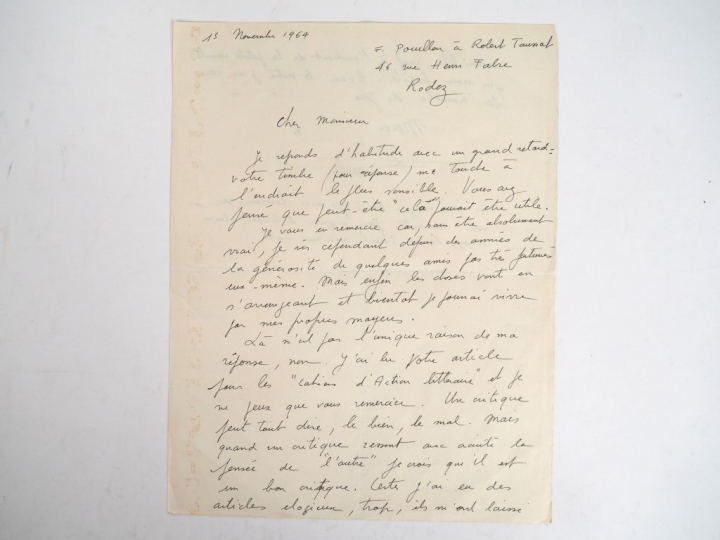 15 Novembre 1964
F. Pouillon à Robert Taussat
16 rue Henri Fabre
Rodez
Cher Monsieur
Je reponds d'habitude avec un grand retard.
votre timbre (pour réponse) me touche à
l'endroit le plus sensible. Vous avez
pensé que peut-être "cela" pouvait être utile.
Je vous en remercie car, sans être absolument
vrai, je vis cependant depuis des années de
la générosité de quelques amis pas très fortunés
eux-même. Mais enfin les choses vont en
s'arrangeant et bientot je pourrai vivre
par mes propres moyens.
Là n'est pas l'unique raison de ma
réponse, non. J'ai lu votre article
pour les "Cahiers d'Action litteraire" et je
ne peux que vous remercier. Un critique
peut tout dire, le bien, le mal. Mais
quand un critique ressent avec acuité la
pensée de "l'autre" je crois qu'il est
un bon critique. Certes j'ai eu des
articles elogieux, trop, ils m'ont laissé